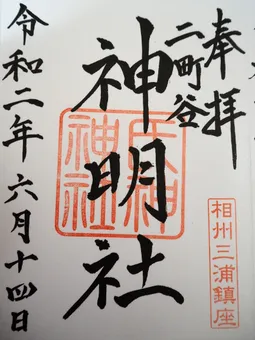 奉拝
二町谷
神明社
相州三浦鎮座
令和二年六月十四日